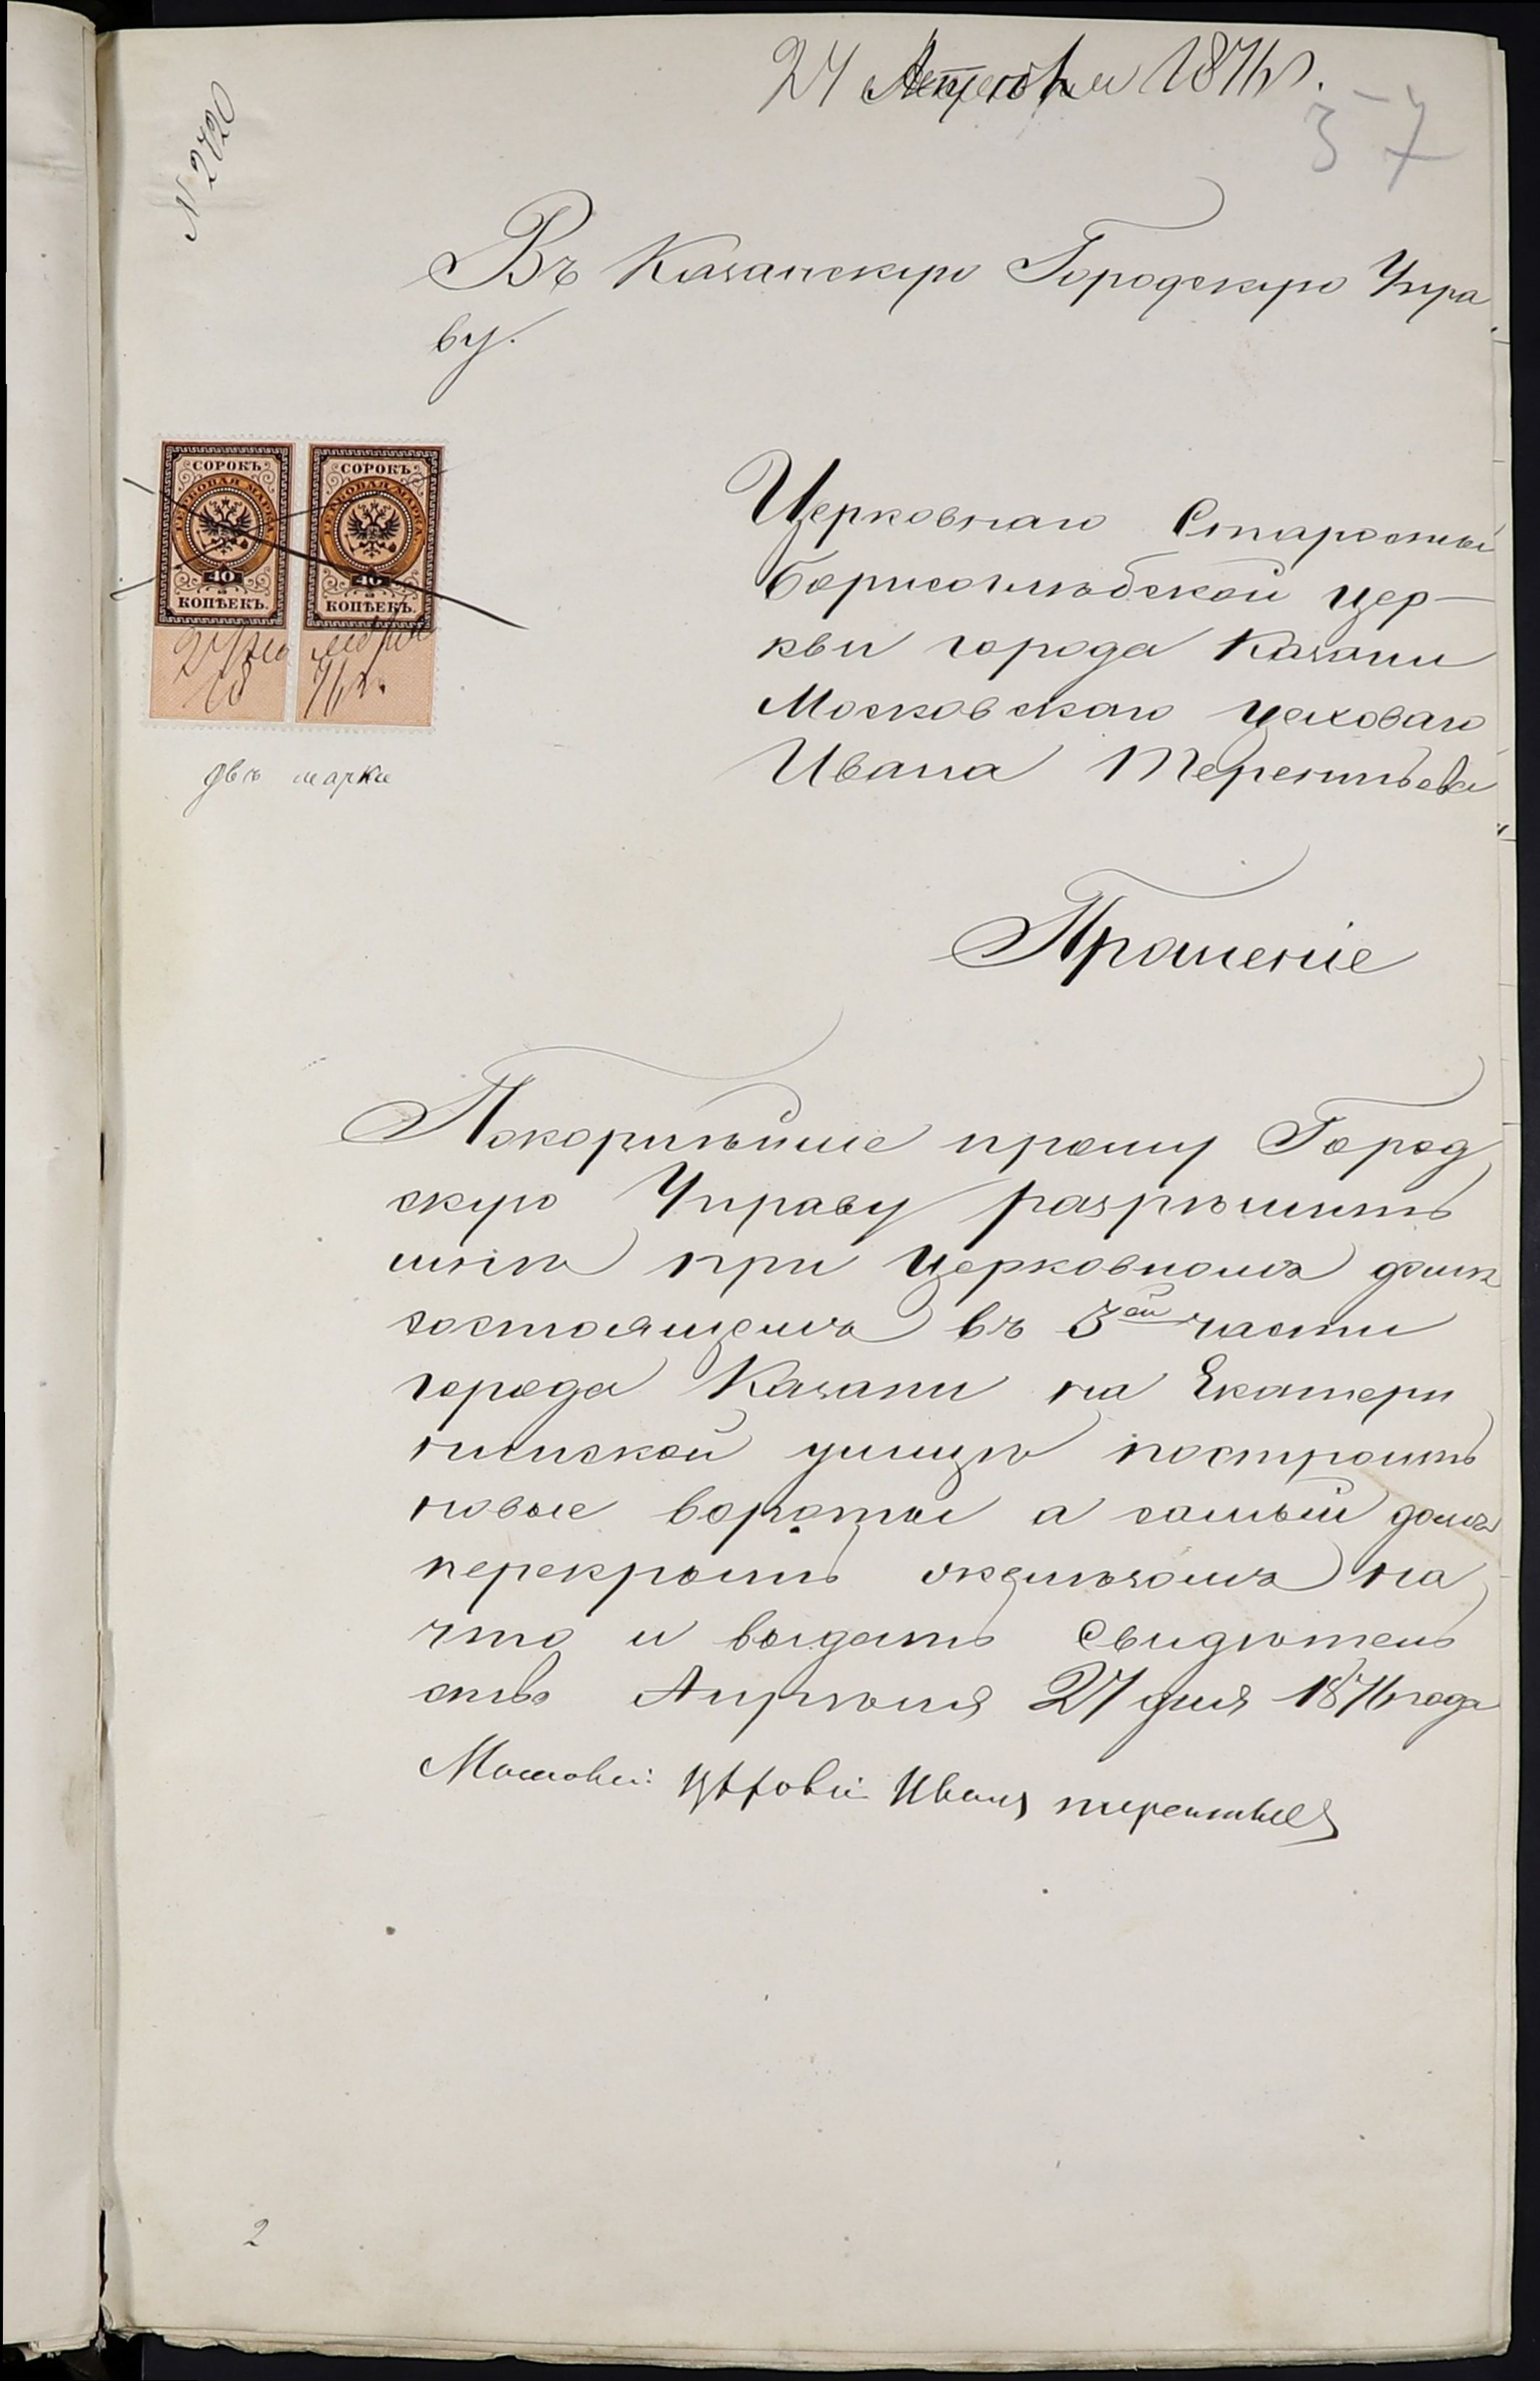 27 Апреля 1876 г.
37
N 2720
Въ Казанскую Городскую Упра
ву.
СОРОКЪ СОРОКЪ
ГЕРБОВАЯ МАРКА ГЕРБОВАЯ МАРКА
40 40
КОПѢЕКЪ. КОПѢЕКЪ.
76 г.
двѣ марки
Церковнаго Старосты
Борисоглѣбской цер-
кви города Казани
Московскаго цеховаго
Ивана Терентьева
Прошеніе
Покорнѣйше прошу Город
скую Управу разрѣшить
мнѣ при церковномъ домѣ
состоящемъ въ 3ей части
города Казани на Екатери
нинской улицѣ построить
новые вороты а самый домъ
перекрыть желѣзомъ на
что и выдать Свидѣтель
ство Апрѣля 27 дня 1876 года
Московскй цѣховй Иванъ терентьевъ
2